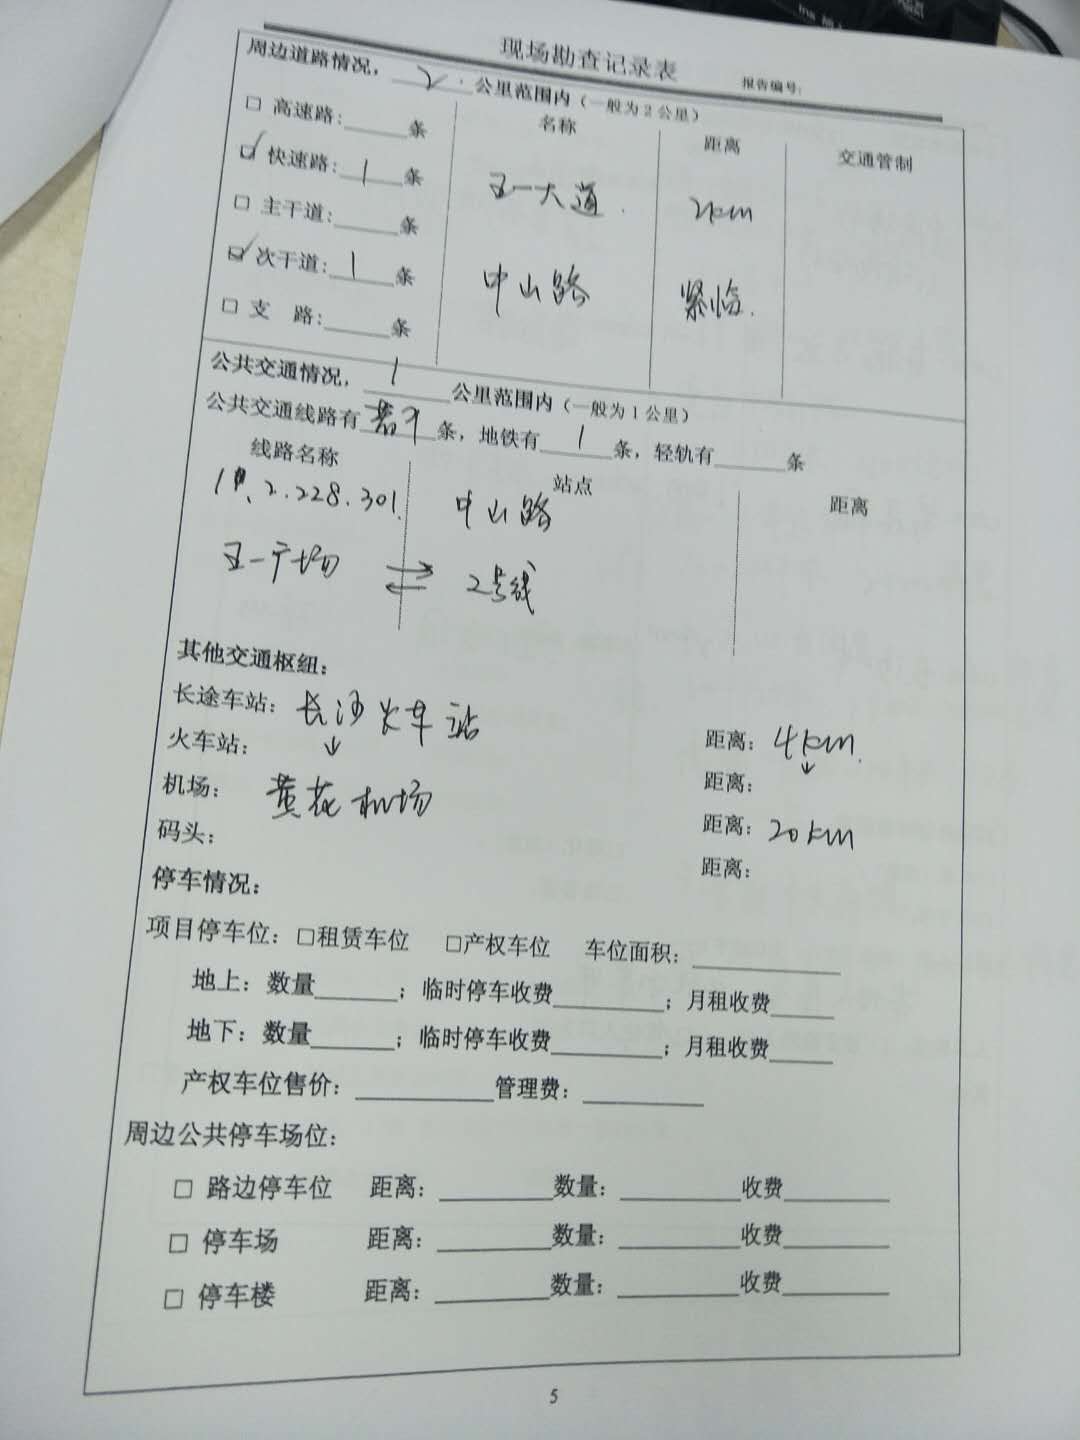 现场勘查记录表 报告编号:
周边道路情况, 2 公里范围内（一般为2公里）
名称 距离 交通管制
□ 高速路:______条
☑ 快速路: 1 条 五一大道 2km
□ 主干道:______条
☑ 次干道: 1 条 中山路 紧临.
□ 支 路:______条
公共交通情况, 1 公里范围内（一般为1公里）
公共交通线路有 若干 条，地铁有 1 条，轻轨有______条
线路名称 站点 距离
2.228.301. 中山路
五一广场 ⇌ 2号线
其他交通枢纽:
长途车站: 长沙火车站 距离: 4km.
火车站: ↓ 距离: ↓
机场: 黄花机场 距离: 20km
码头: 距离:
停车情况:
项目停车位: □租赁车位 □产权车位 车位面积:__________
地上: 数量______; 临时停车收费________; 月租收费_____
地下: 数量______; 临时停车收费________; 月租收费_____
产权车位售价: __________管理费: _________
周边公共停车场位:
□ 路边停车位 距离: ________数量: _________收费________
□ 停车场 距离: ________数量: _________收费________
□ 停车楼 距离: ________数量: _________收费________
5